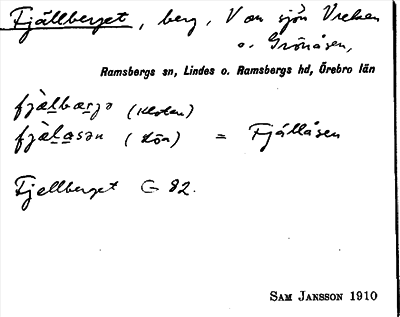 Fjällberget, berg, V om sjön Vreken
o. Grönåsen,
Ramsbergs sn, Lindes o. Ramsbergs hd, Örebro län
fjälbærjə (Kloten)
fjälasən ( ) = Fjällåsen
Fjellberget G 82.
SAM JANSSON 1910